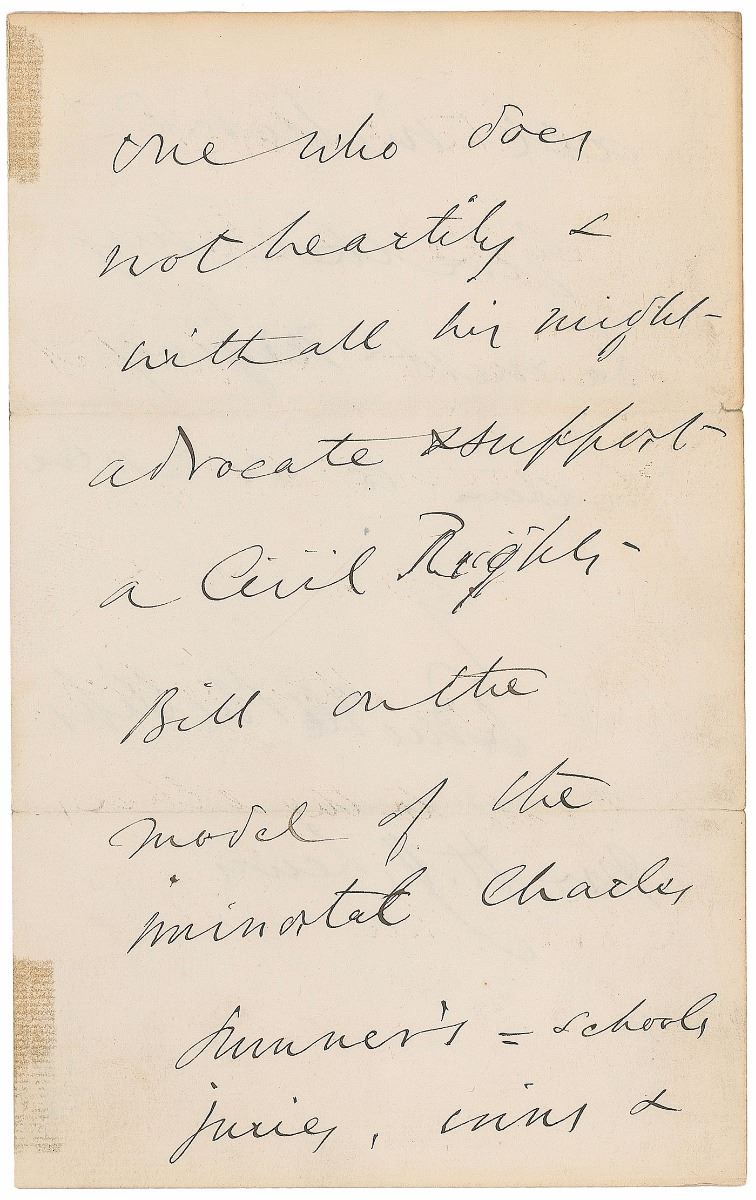 one who does
not heartily &
with all his might
advocate & support
a Civil Rights
Bill on the
model of the
immortal Charles
Sumner's = schools
juries, inns &